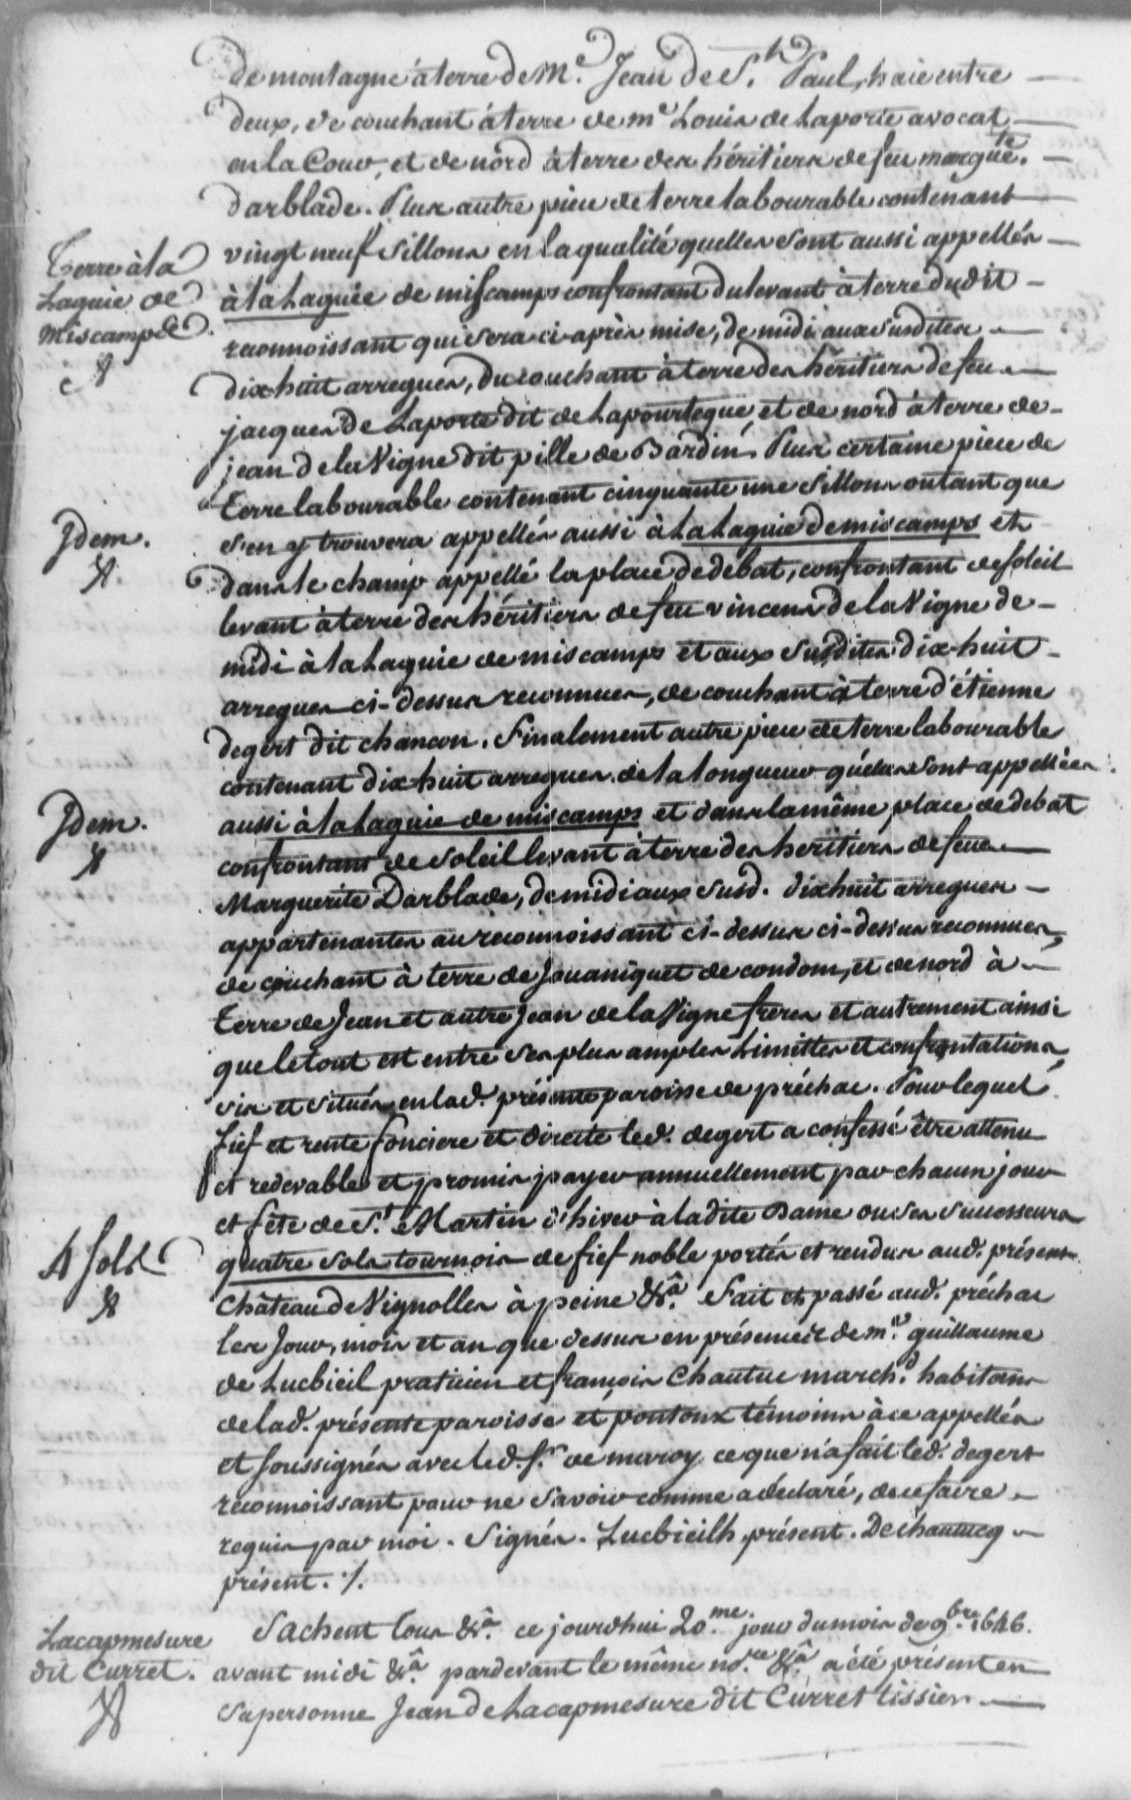 de montagne à terre de Me. Jean de St. Paul, haie entre
deux, de couchant à terre de me Louis de Laporte avocat
en la Cour, et de nord à terre des héritiers de feu margte.
Darblade. Plus autre piece de terre labourable contenant
vingt neuf sillons en la qualité quelles sont aussi appellés
Terre à la
Laguie de
Miscamps.
à la Laguie de miscamps confrontant du levant à terre dudit
reconnoissant qui sera ci-après mise, de midi aux susdites
dix huit arregues, du couchant à terre des héritiers de feu
jacques de Laporte dit de Lapourteque, et de nord à terre de
jean de la Vigne dit pille de Bardin. Plus certaine piece de
Terre labourable contenant cinquante une sillons ou tant que
Idem.
s'en y trouvera appellés aussi à La Laguie de miscamps et
dans le champ appellé la place de debat, confrontant de soleil
levant à terre des héritiers de feu vincens de la Vigne de
midi à la Laguie de miscamps et aux susdites dix-huit
arregues ci-dessus reconnues, de couchant à terre d'étienne
degert dit chancon. Finalement autre piece de terre labourable
contenant dix huit arregues de la longueur quelles sont appellées
Idem.
aussi à la Laguie de miscamps et dans la même place de debat
confrontant de soleil levant à terre des heritiers de feue
Marguerite Darblade, de midi aux susd. dixhuit arregues
appartenantes au reconnoissant ci-dessus ci-dessus reconnues,
de couchant à terre de Jouaniquet de condom, et de nord à
Terre de Jean et autre Jean de la Vigne freres et autrement ainsi
que le tout est entre ses plus amples Limittes et confrontations,
sis et situés en lad. présente paroisse de préchac. Pour lequel
fief et rente fonciere et directe led. degert a confessé être attenu
et redevable et promis payer annuellement par chacun jour
et fête de St. Martin d'hiver à ladite Dame ou ses successeurs
4 sols
quatre sols tournois de fief noble portés et rendus aud. présent
Château de Vignolles à peine &a. Fait et passé aud. préchac
les Jour, mois et an que dessus en présence de me guillaume
de Lucbieil praticien et françois Chautuc march.d habitans
de lad. présente paroisse et pontonx témoins à ce appellés
et soussignés avec led. Sr. de maroy ce que n'a fait led. degert
reconnoissant pour ne savoir comme a déclaré, de ce faire
requis par moi. Signés. Lucbieilh présent. Dechautucq
présent. /.
Lacapmesure
dit Curret.
Sachent tous &a. ce jourdhui 20.me jour du mois de 9.bre 1646.
avant midi &a. pardevant le même no.re &a. a été présent en
sa personne Jean de Lacapmesure dit Curret tissier